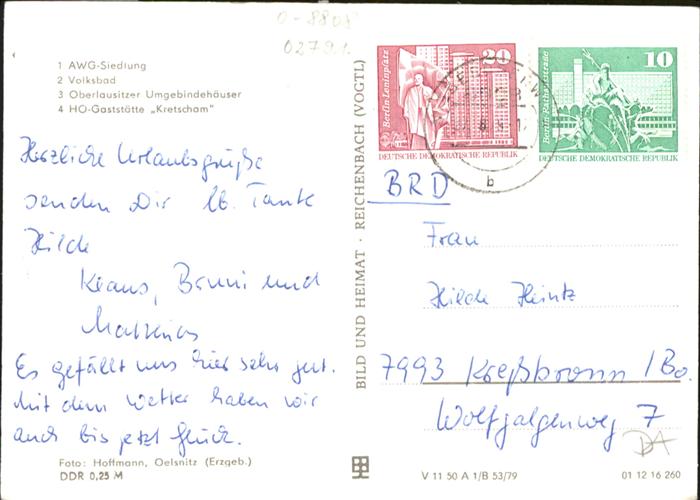 0-8801
02791
1 AWG-Siedlung
2 Volksbad
3 Oberlausitzer Umgebindehäuser
4 HO-Gaststätte „Kretscham"
Herzliche Urlaubsgrüße
senden Dir lb. Tante
Hilde
Klaus, Bruni und
Matthias
Es gefällt uns hier sehr gut.
Mit dem Wetter haben wir
auch bis jetzt Glück.
Foto: Hoffmann, Oelsnitz (Erzgeb.)
DDR 0,25 M
BILD UND HEIMAT · REICHENBACH (VOGTL)
Berlin-Leninplatz
20
DEUTSCHE DEMOKRATISCHE REPUBLIK
Berlin-Rathausstraße
10
DEUTSCHE DEMOKRATISCHE REPUBLIK
b
BRD
Frau
Hilde Heintz
7993 Kreßbronn / Bo.
Wolfgalgenweg 7
V 11 50 A 1/B 53/79
01 12 16 260